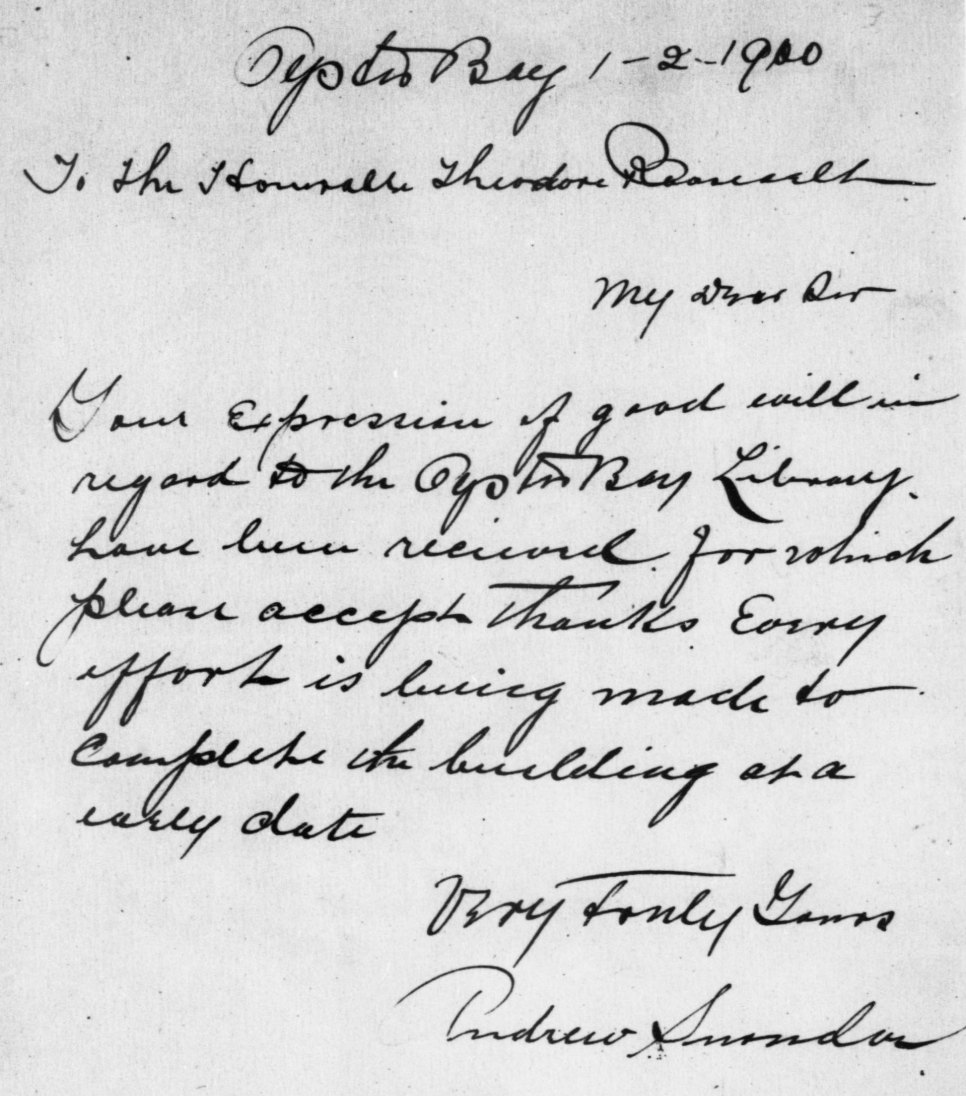 Oyster Bay 1-2-1900
To the Honorable Theodore Roosevelt
My Dear Sir
Your Expression of good will in
regard to the Oyster Bay Library.
have been recieved. for which
please accept thanks Every
effort is being made to
complete the building at a
early date
Very truly Yours
Andrew